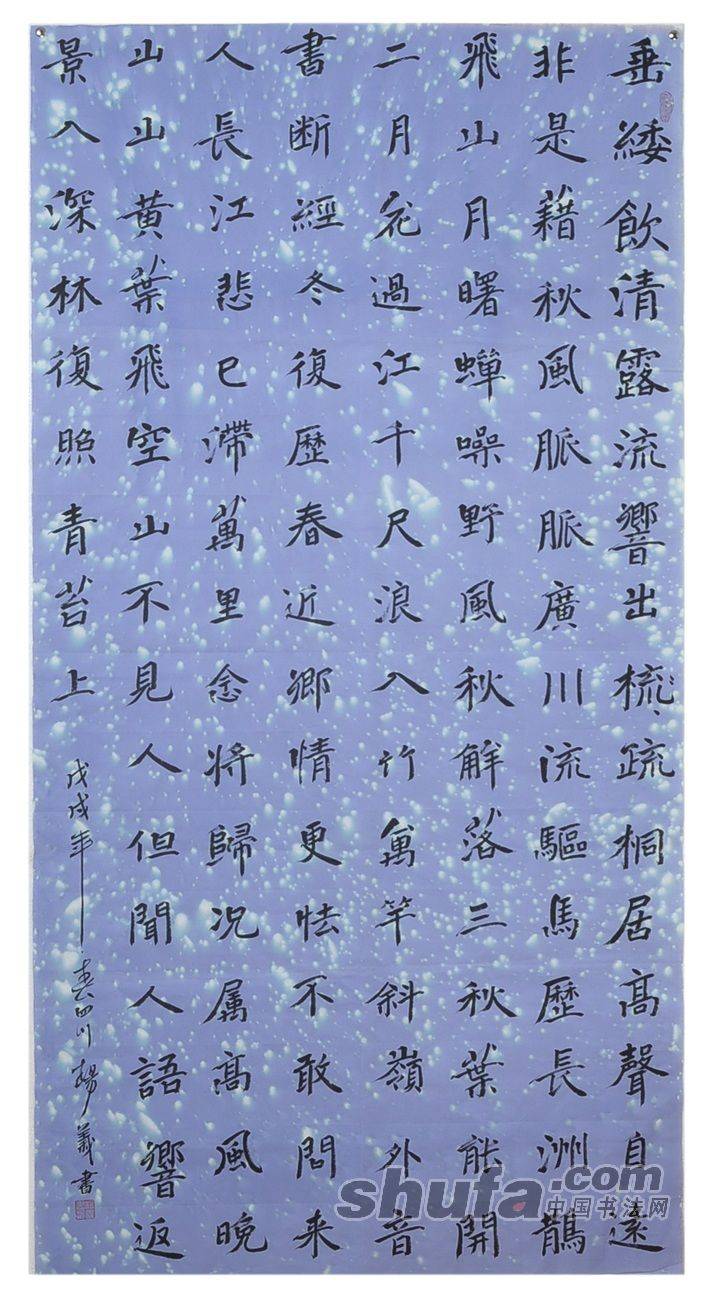 垂緌飲清露流響出梳疏桐居高聲自遠
非是藉秋風脈脈廣川流驅馬歷長洲鵲
飛山月曙蟬噪野風秋解落三秋葉能開
二月花過江千尺浪入竹萬竿斜嶺外音
書断經冬復歷春近鄉情更怯不敢問来
人長江悲已滯萬里念將歸况属高風晚
山山黄葉飛空山不見人但聞人語響返
景入深林復照青苔上
戊戌年春四川楊義書
shufa.com
中国书法网